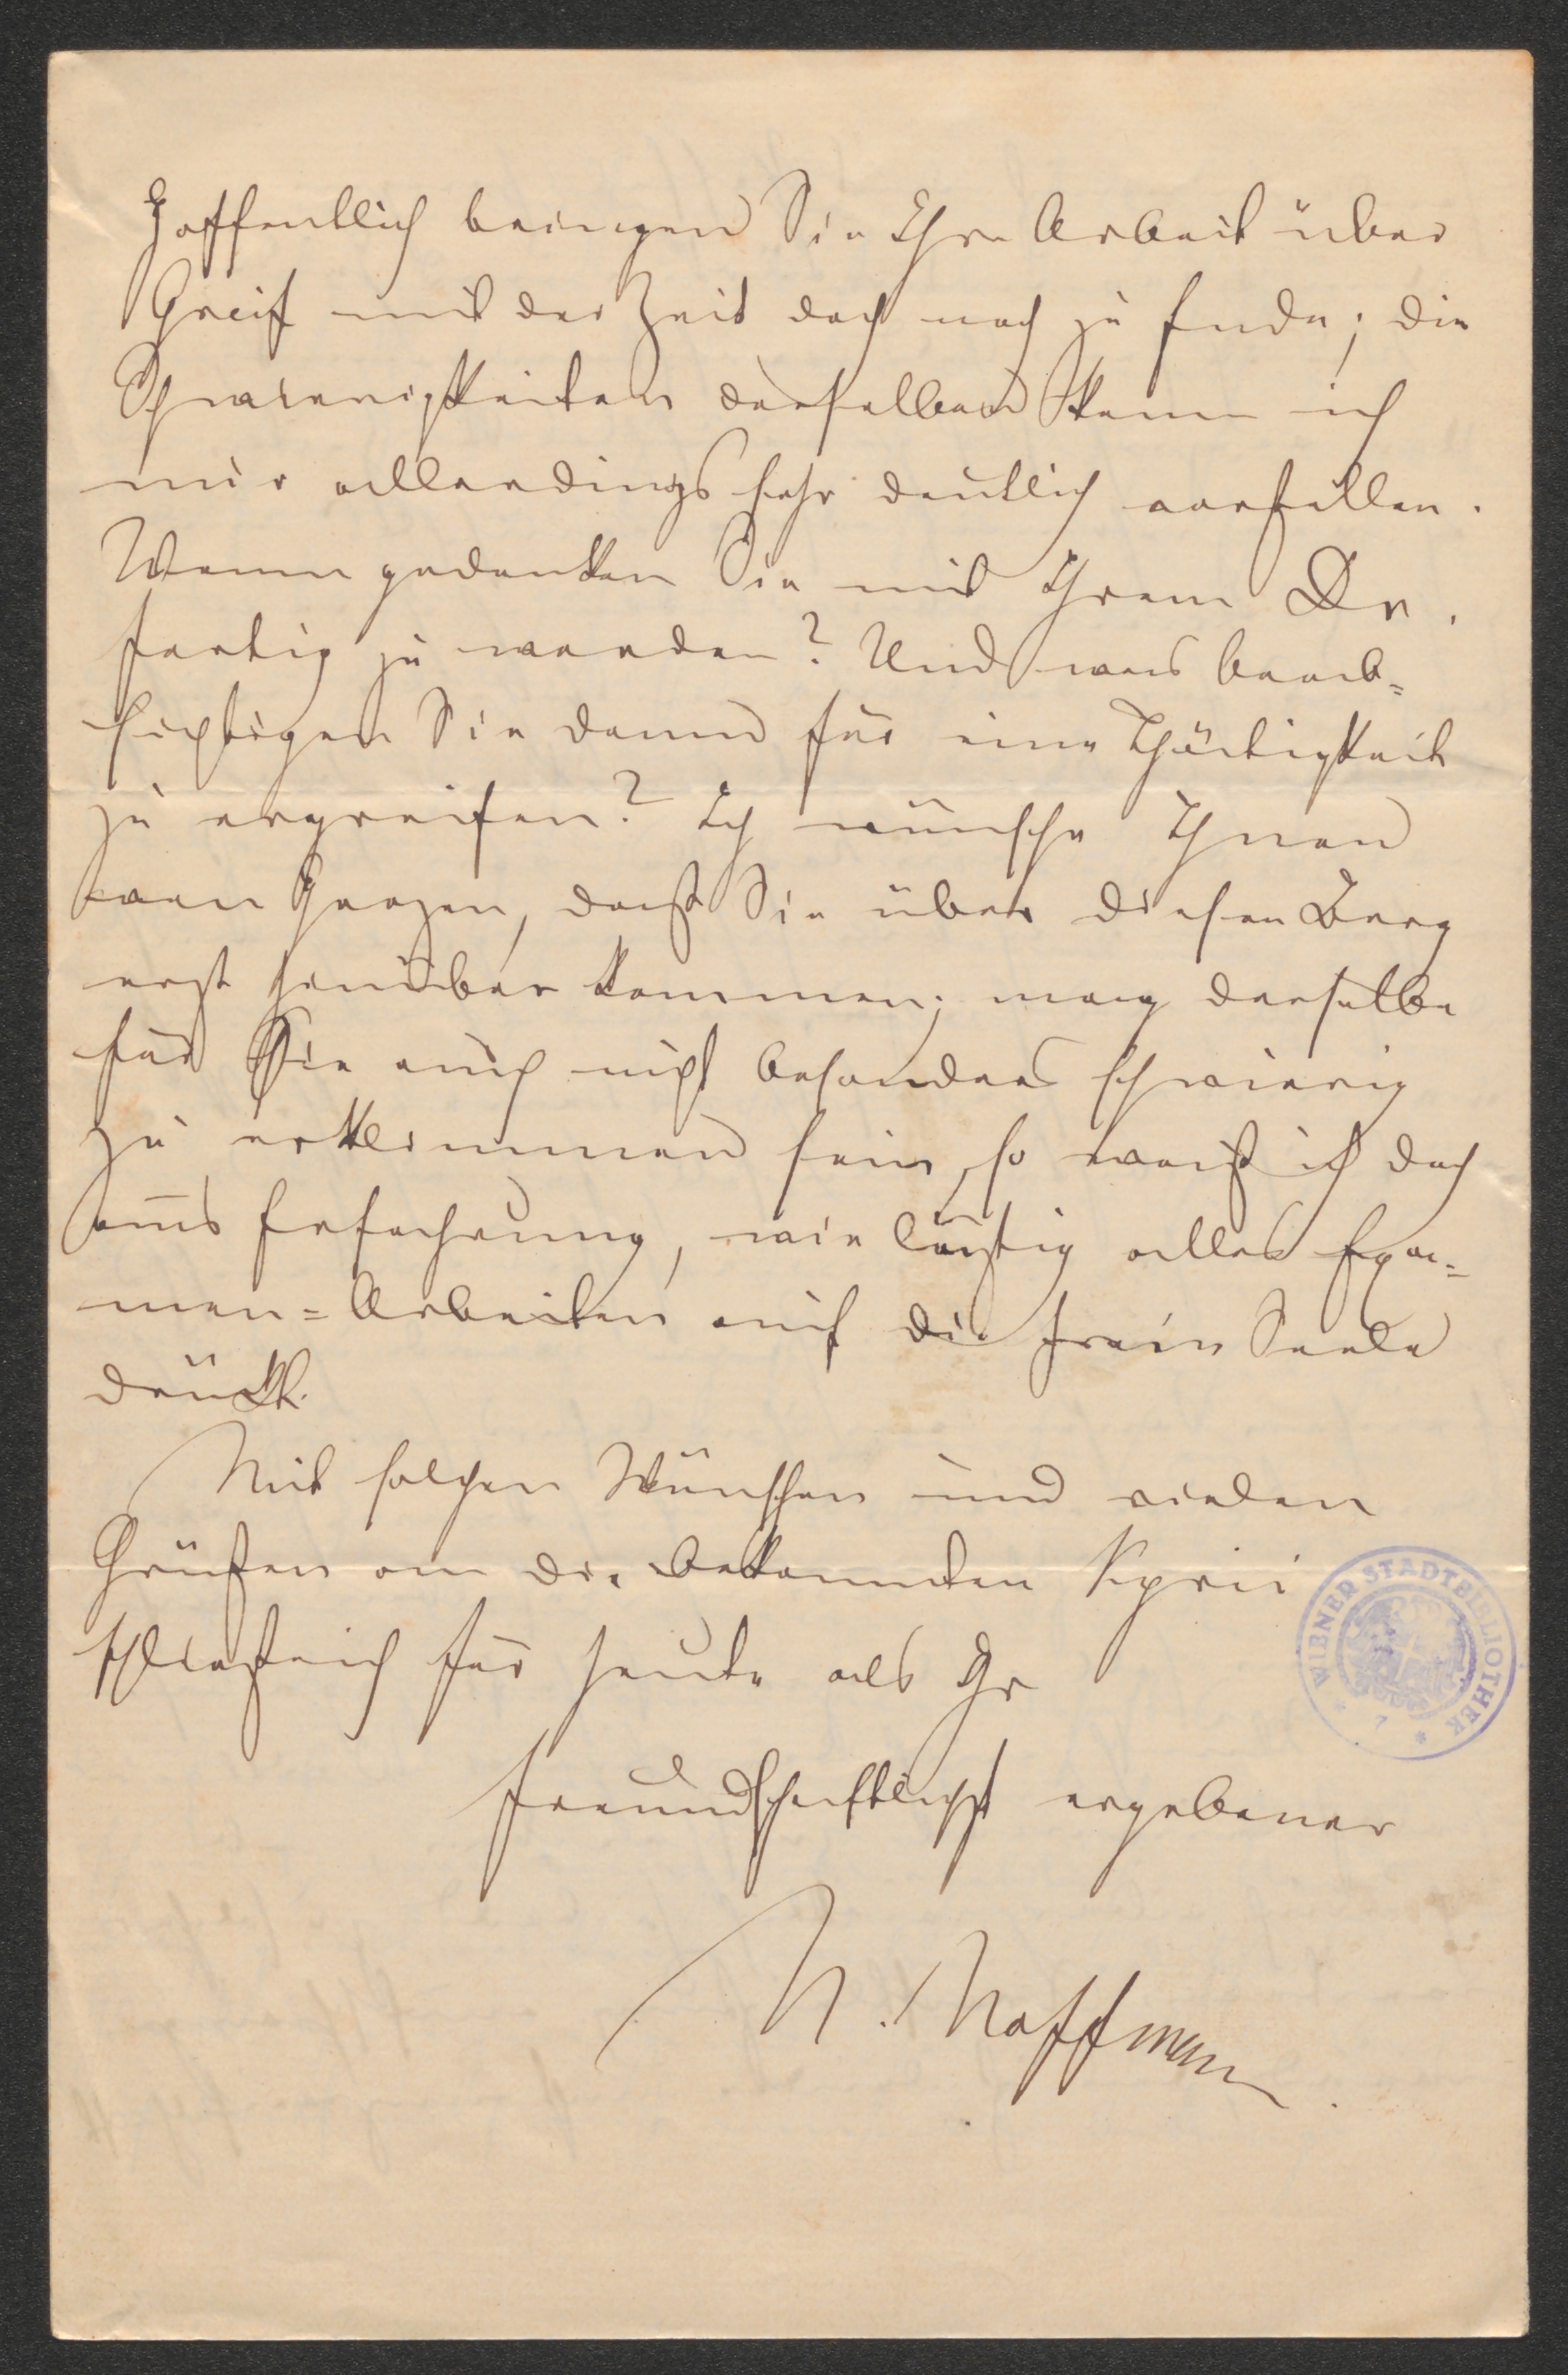 Hoffentlich bringen Sie Ihre Arbeit über
Greif mit der Zeit doch noch zu Ende; die
Schwierigkeiten derselben kann ich
mir allerdings sehr deutlich vorstellen.
Wann gedenken Sie mit Ihrem Dr.
fertig zu werden? Und was beab-
sichtigen Sie dann für eine Thätigkeit
zu ergreifen? Ich wünsche Ihnen
von Herzen, daß Sie über diesen Berg
erst hinüber kommen; mag derselbe
für Sie auch nicht besonders schwierig
zu erklimmen sein, so weiß ich doch
aus Erfahrung, wie lästig alles Exa-
men-Arbeiten auf die freie Seele
drückt.
Mit solchen Wünschen und vielen
Grüßen an die bekannten Kyrii
schließe ich für heute als Ihr
freundschaftlichst ergebener
N. Hoffmann
WIENER STADTBIBLIOTHEK